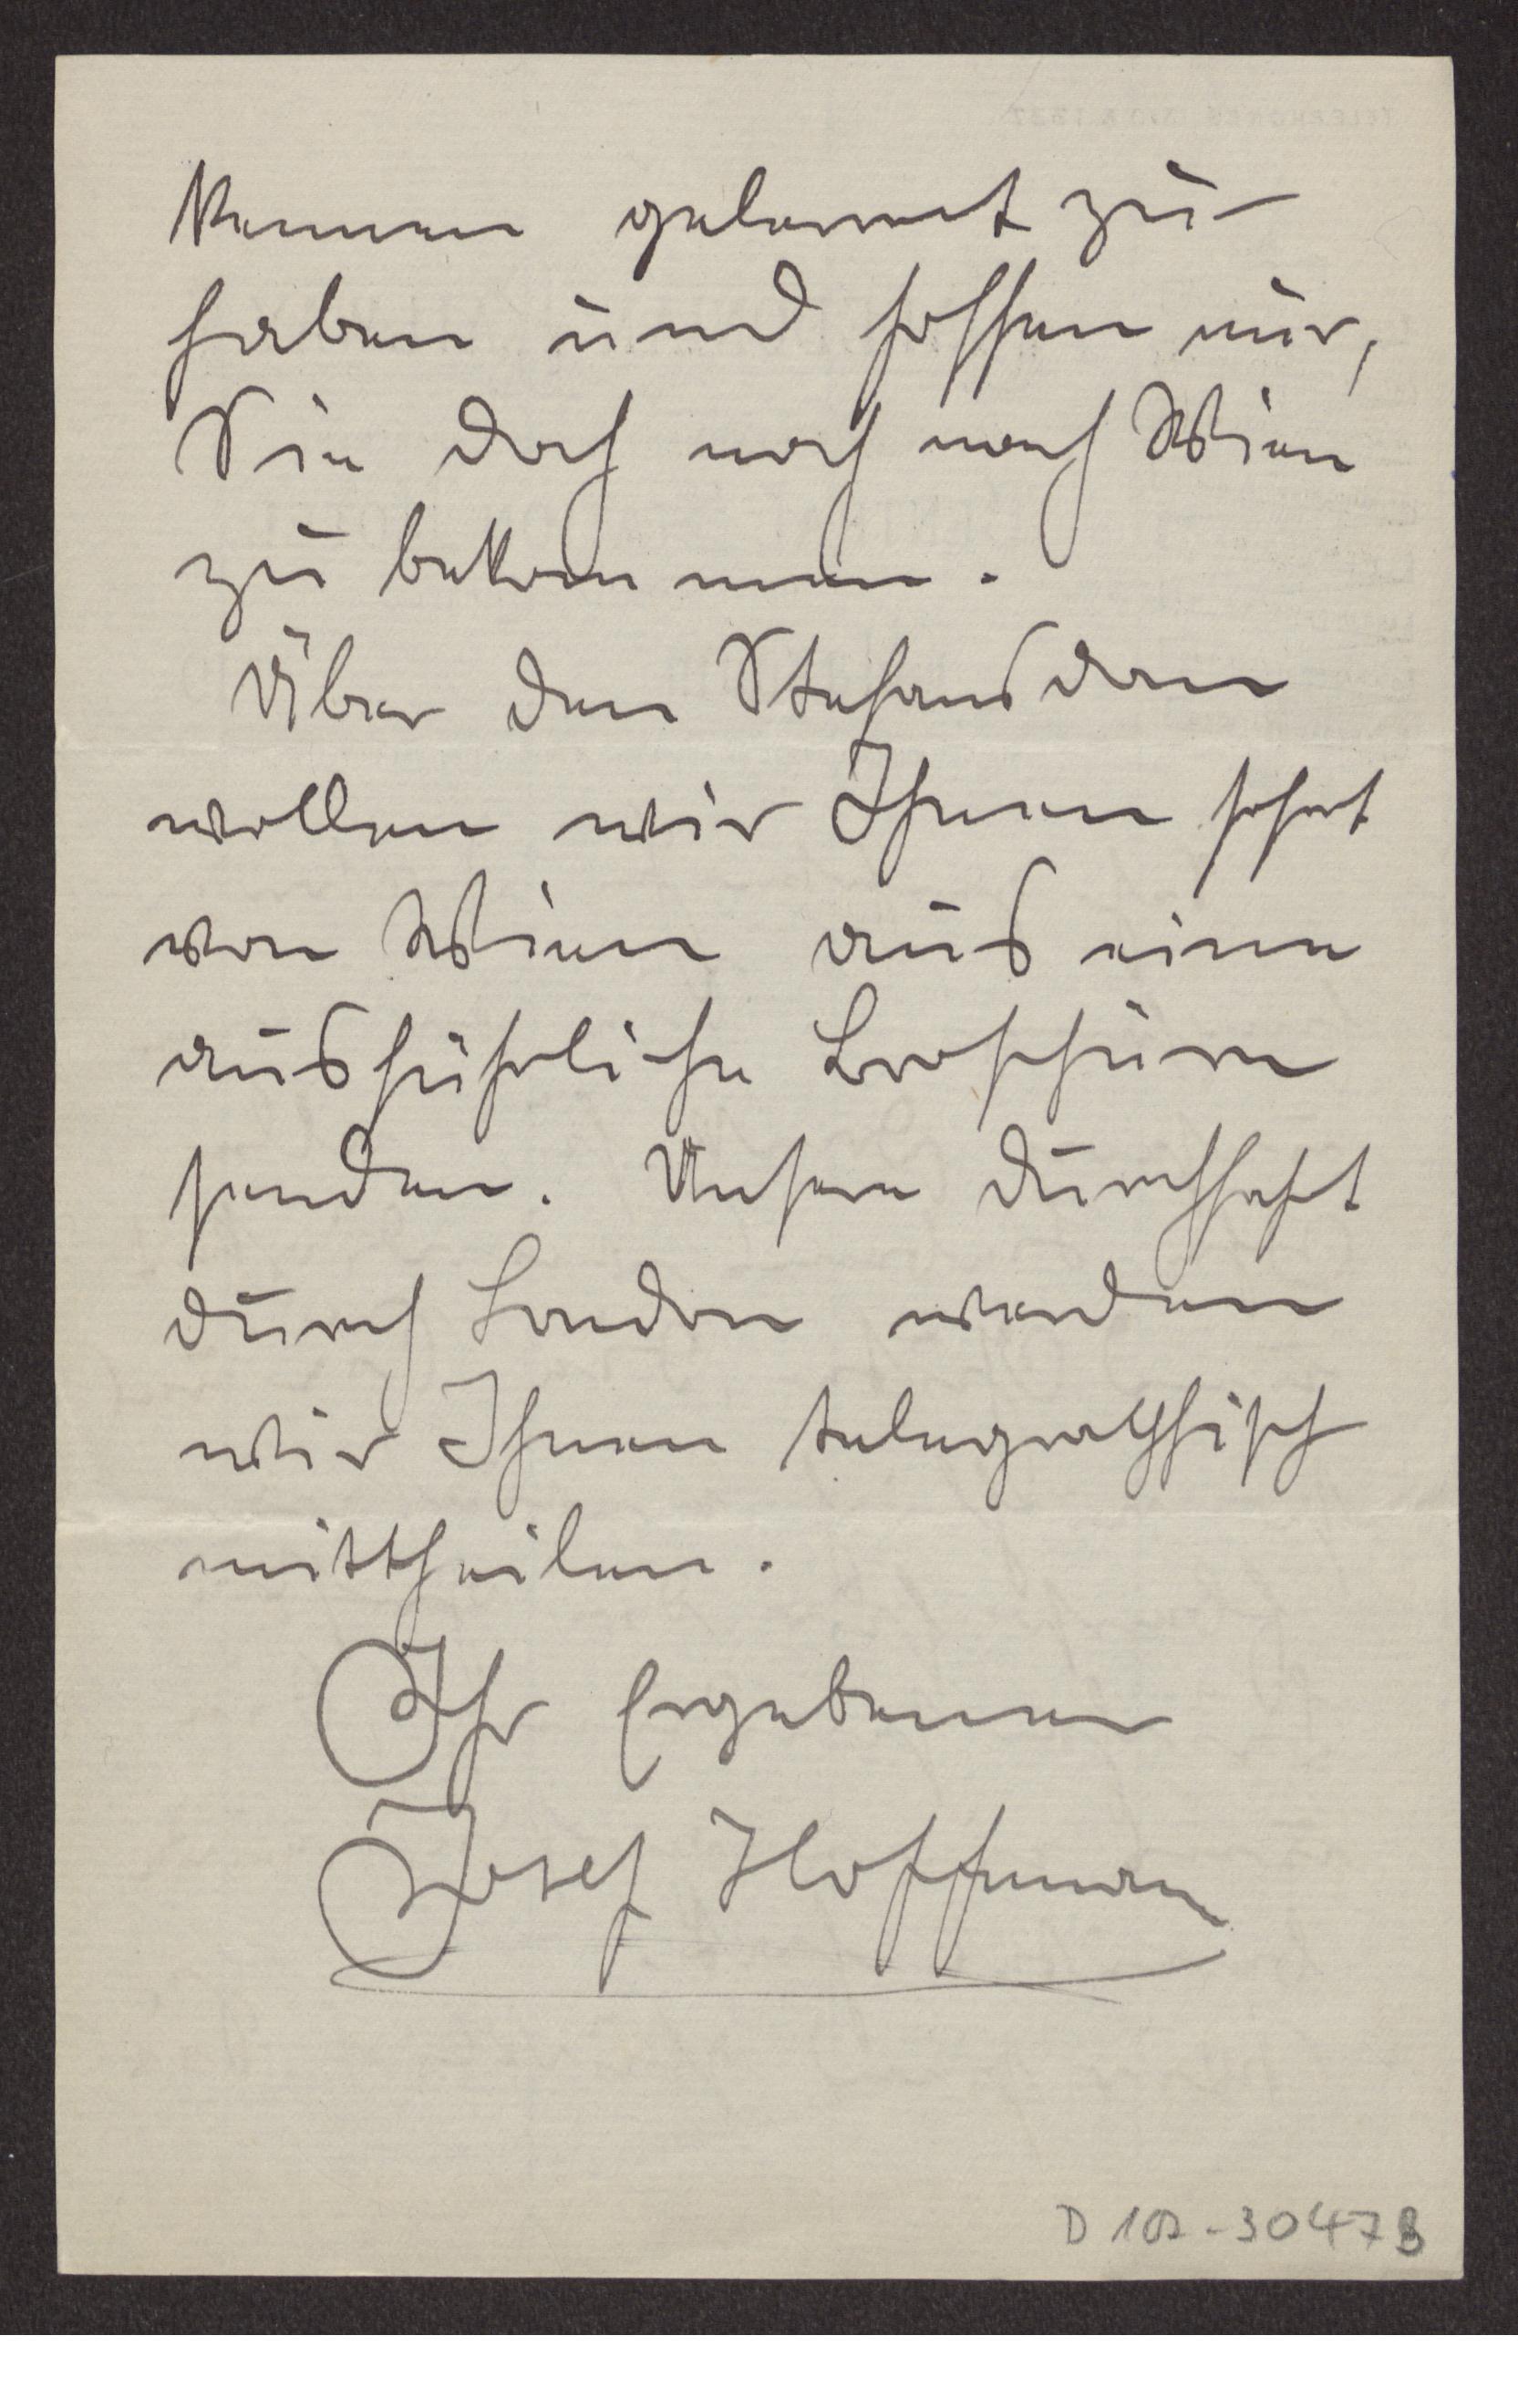 Kennen gelernt zu
haben und hoffen nur,
Sie doch noch nach Wien
zu bekommen.
Über den Stefansdom
wollen wir Ihnen sofort
von Wien aus eine
ausführliche Broschüre
senden. Unsere Durchfahrt
durch London werden
wir Ihnen telegraphisch
mittheilen.
Ihr Ergebener
Josef Hoffmann
D 102-30473